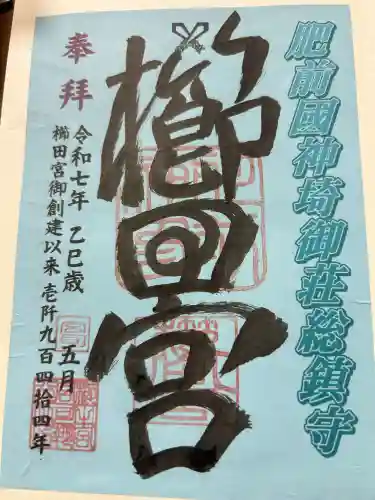 肥前國神埼御荘総鎮守
櫛田宮
奉拝
令和七年 乙巳歳 五月
櫛田宮御創建以来 壱阡九百四拾四年